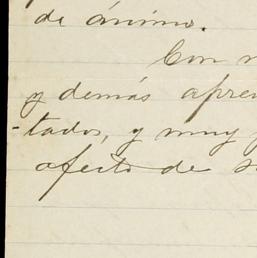 de ánimo.
Con
y demás apre
-tados, y muy
afecto de